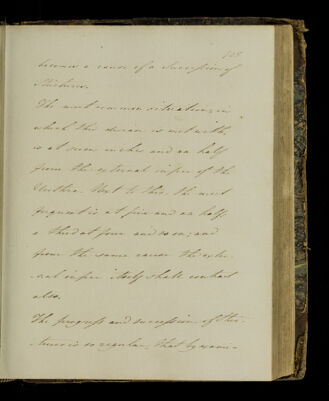 become a cause of a Succession of
Strictures.
The most common situation in
which this disease is met with
is at seven inches and an half
from the external orifice of the
Urethra. Next to this, the most
frequent is at five and an half,
a third at four and so on; and
from the same cause the exter-
nal orifice itself shall contract
also.
The progress and succession of Stric-
tures is so regular, that by exami-